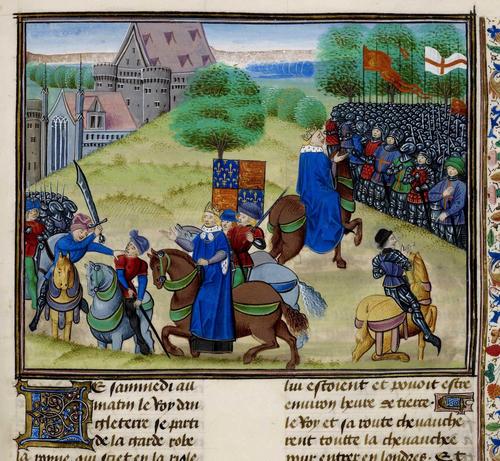 Le samnedi au
matin le Roy dan
gleterre se parti
de la garde robe
la royne qui siet en la riole
lui estoient et pouoit estre
enuiron heure de tierce.
le Roy et sa route cheuauche
rent toutte la cheuauchee
pour entrer en londres. Et